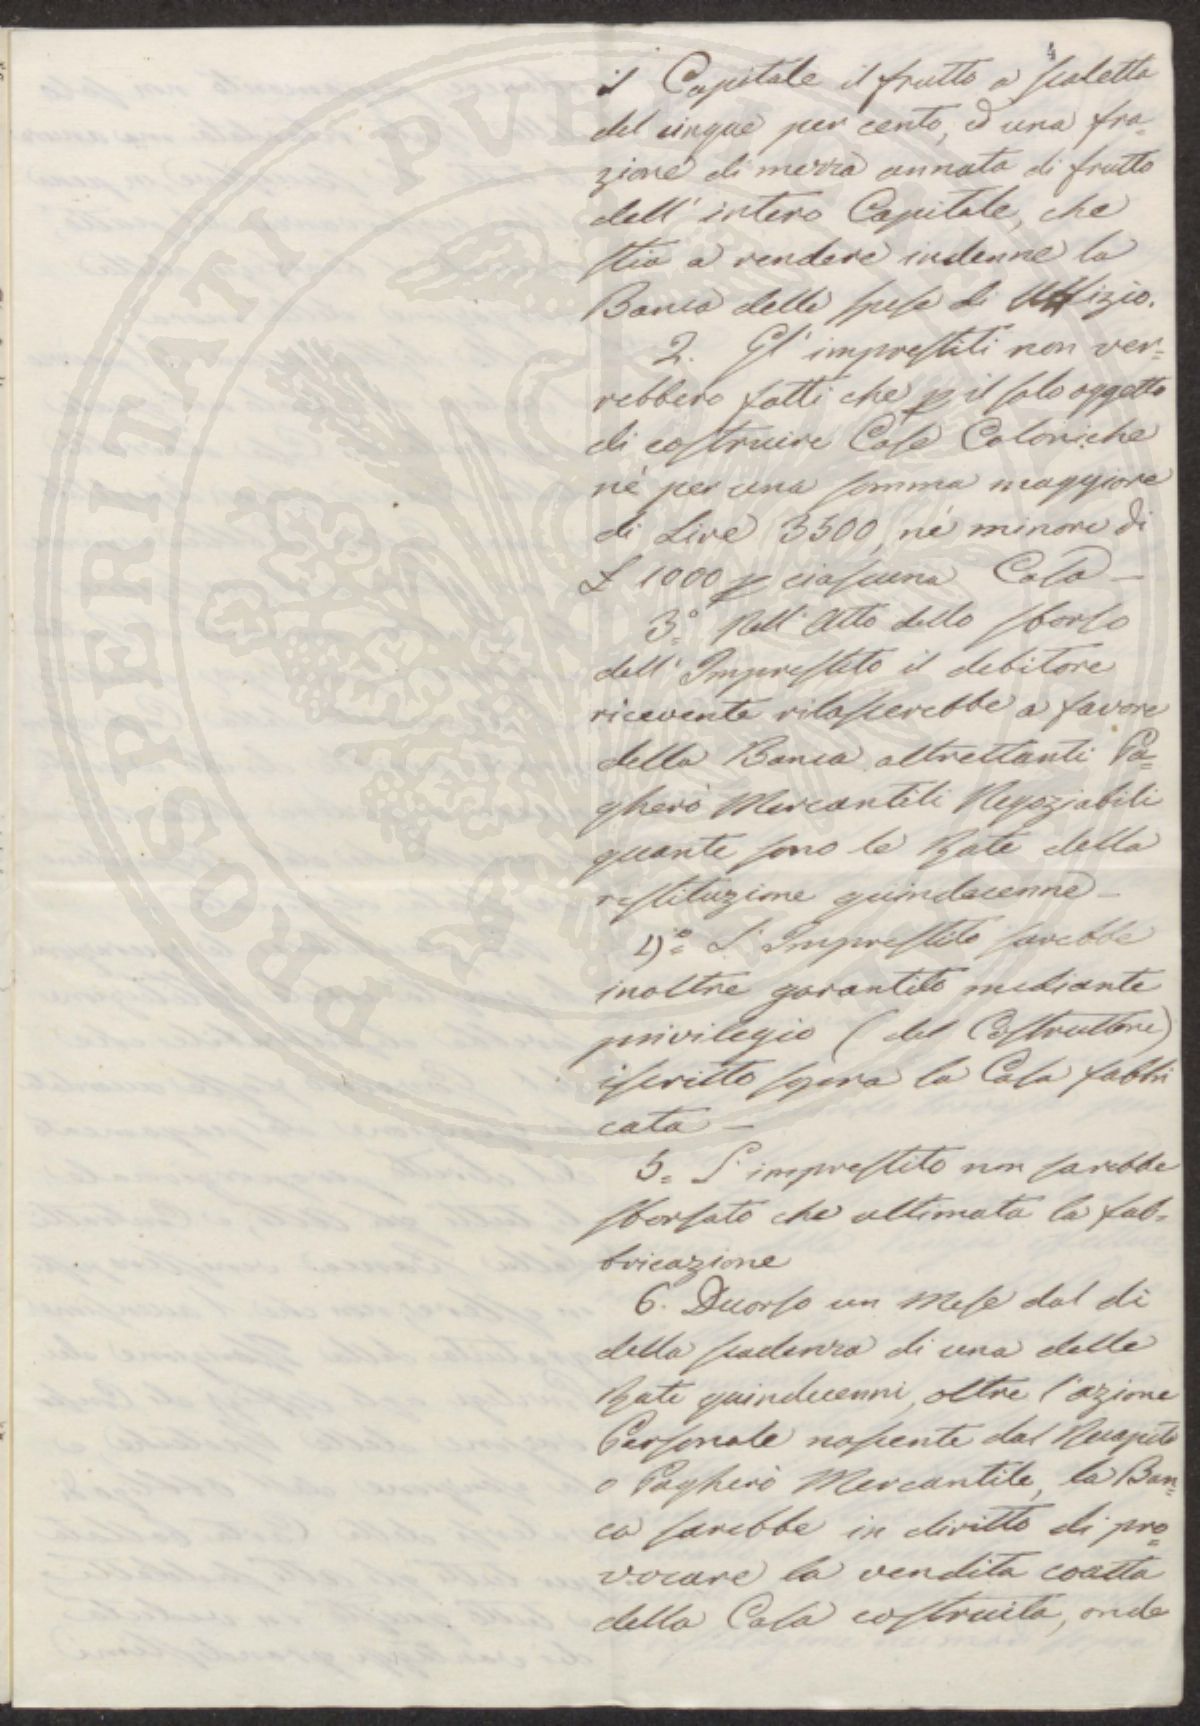 4
il Capitale il frutto a scaletta
del cinque per cento, ed una fra=
zione di mezza annata di frutto
dell' intero Capitale, che
stia a rendere indenne la
Banca delle spese di Uffizio.
2. Gl' imprestiti non ver=
rebbero fatti che p il solo oggetto
di costruire Case Coloniche
nè per una somma maggiore
di Lire 3500, nè minore di
£ 1000 p ciascuna Casa _
3.° Nell' Atto dello sborso
dell' Imprestito il debitore
ricevente rilascerebbe a favore
della Banca altrettanti Pa=
gherò Mercantili Negoziabili
quante sono le Rate della
restituzione quindecenne _
4)° L' Imprestito sarebbe
inoltre garantito mediante
privilegio (del Costruttore)
iscritto sopra la Casa fabbri
cata _
5= L' imprestito non sarebbe
sborsato che ultimata la fab=
bricazione
6. Decorso un Mese dal di
della scadenza di una delle
Rate quindecenni, oltre l'azione
Personale nascente dal Recapito
o Pagherò Mercantile, la Ban=
ca sarebbe in diritto di pro=
vocare la vendita coatta
della Casa costruita, onde
PROSPERITATI PUBLICAE